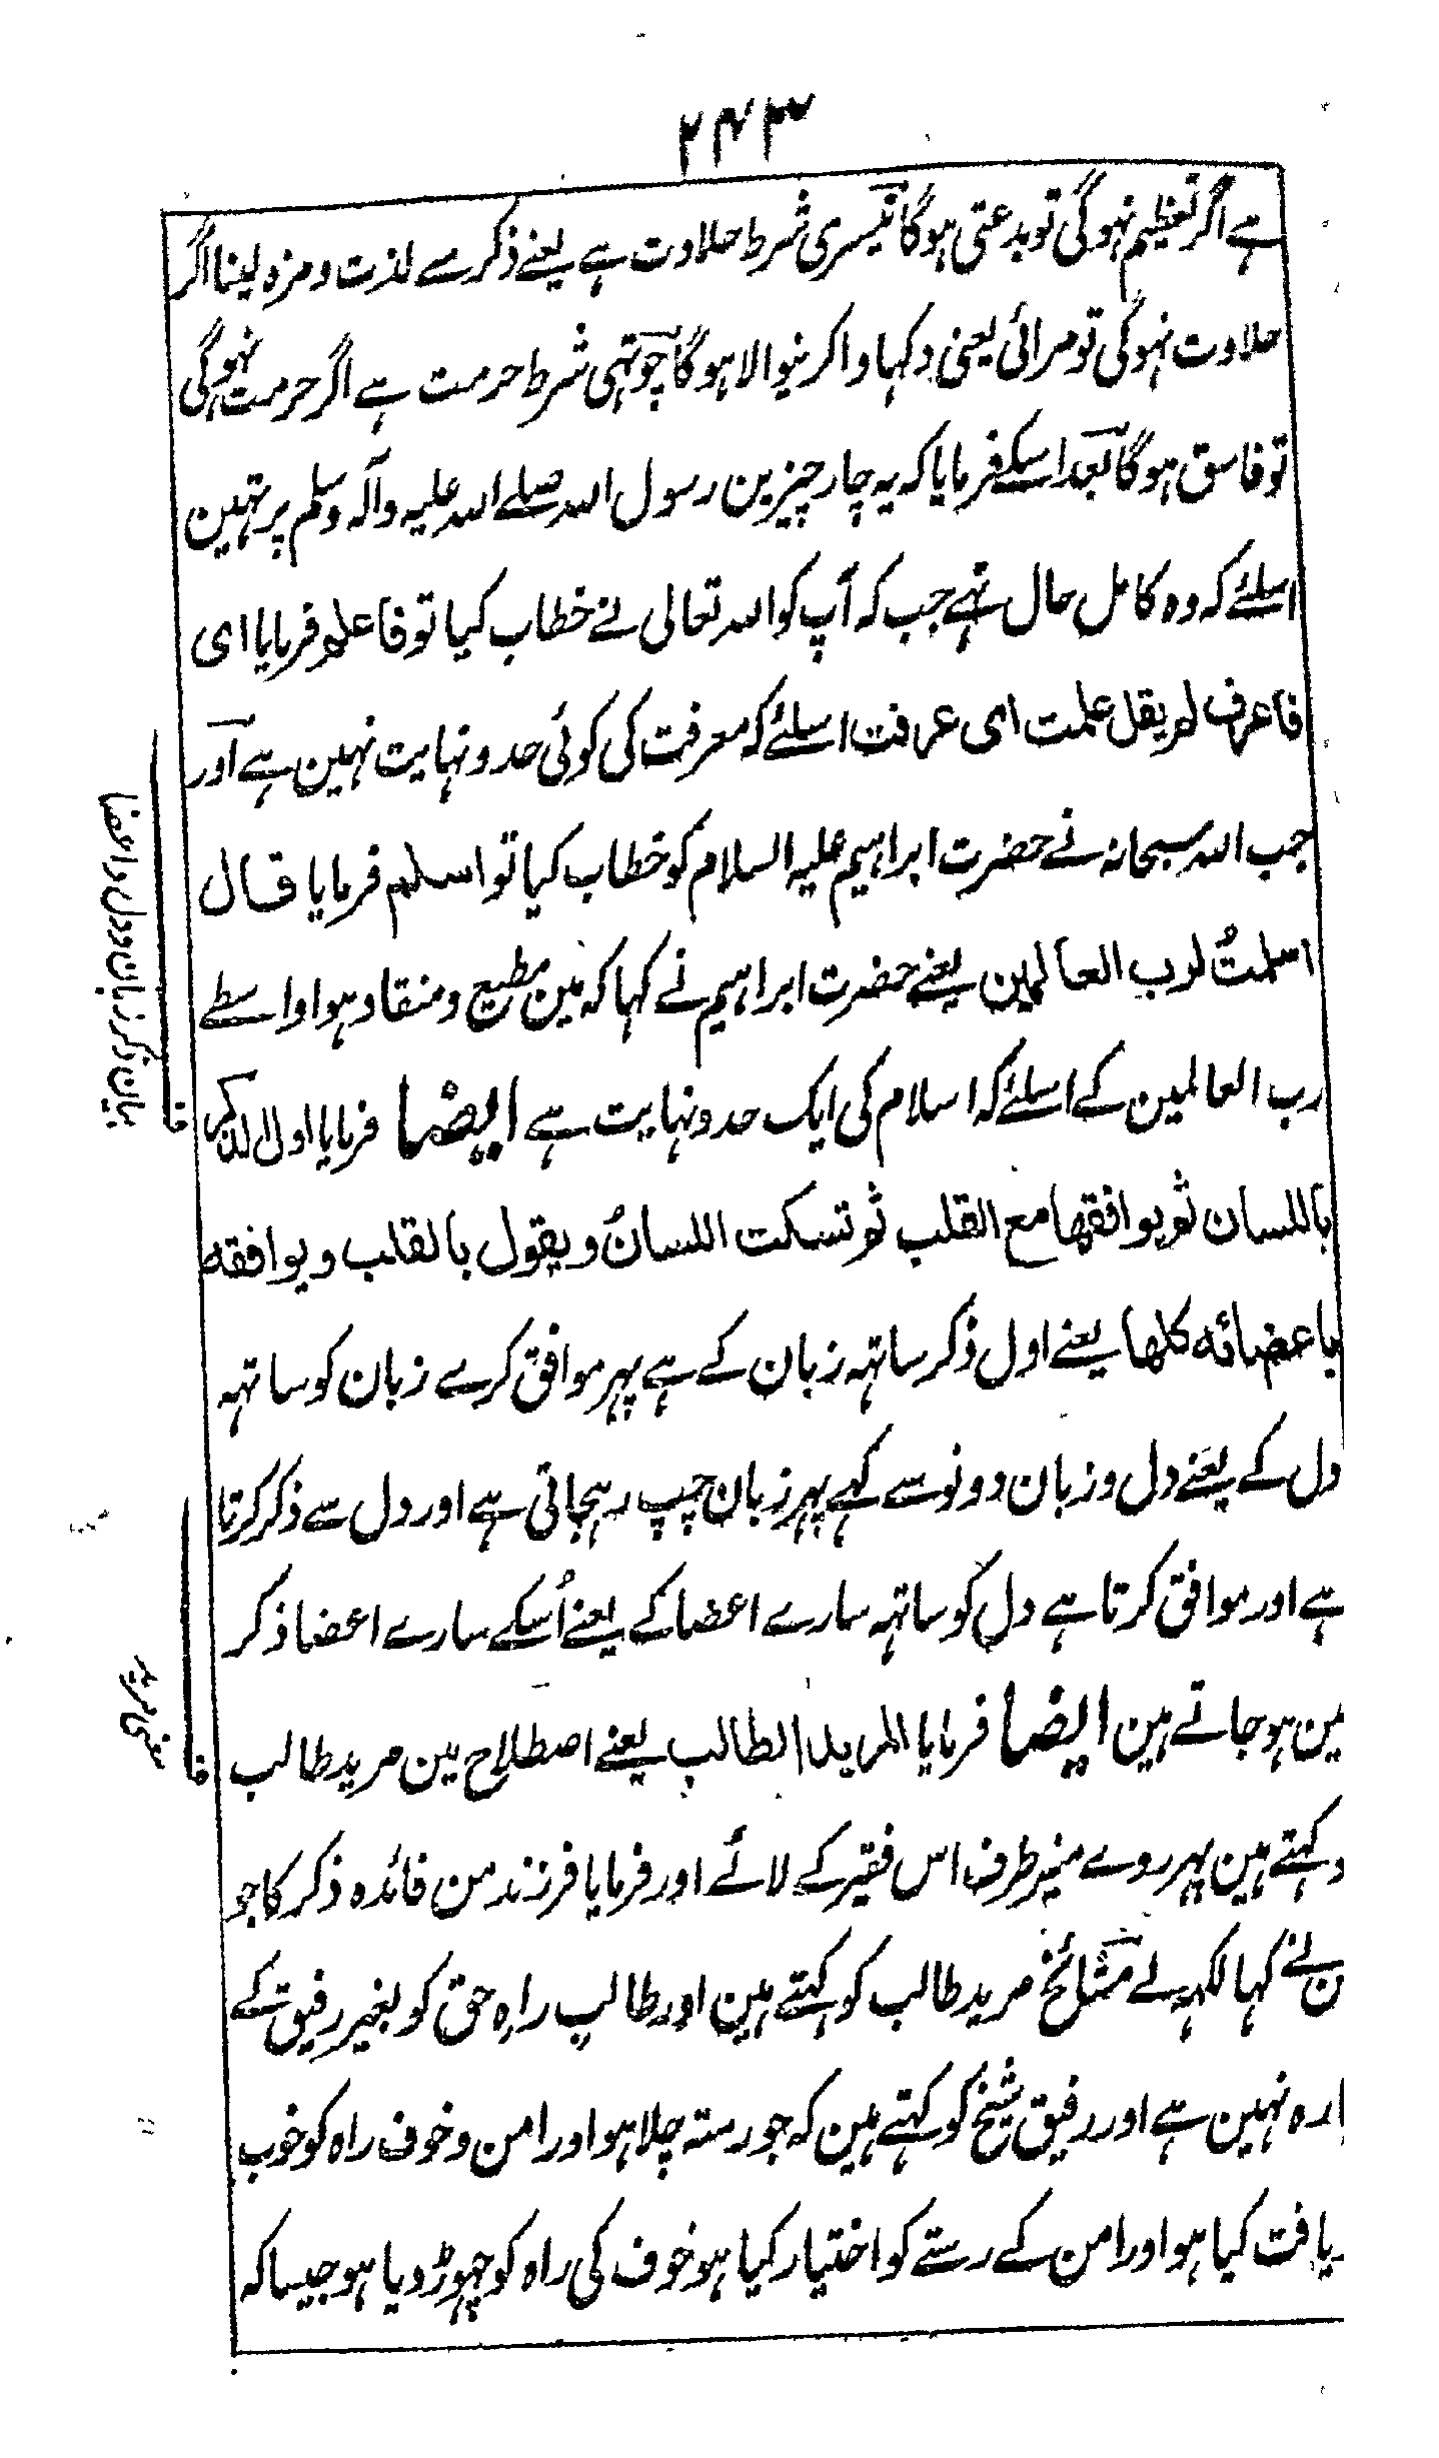 ۲۴۳
ہے اگر تعظیم نہوگی تو بدعتی ہوگا تیسری شرط حلاوت ہے یعنے ذکر سے لذت و مزہ لینا اگر
حلاوت نہوگی تو مرائی یعنی دکہاوا کرنیوالا ہوگا چوتہی شرط حرمت ہے اگر حرمت نہوگی
تو فاسق ہوگا بعد اسکے فرمایا کہ یہ چار چیزین رسول اللہ صلے اللہ علیہ وآلہ وسلم پر تہین
اسلئے کہ وہ کامل حال تہے جب کہ آپ کو اللہ تعالی نے خطاب کیا تو فاعلم فرمایا ای
فاعرف لم یقل علمت ای عرفت اسلئے کہ معرفت کی کوئی حد و نہایت نہین ہے اور
جب اللہ سبحانہ نے حضرت ابراہیم علیہ السلام کو خطاب کیا تو اسلم فرمایا قال
اسلمتُ لرب العالمین یعنے حضرت ابراہیم نے کہا کہ مین مطیع و منقاد ہوا واسطے
رب العالمین کے اسلئے کہ اسلام کی ایک حد و نہایت ہے ایضا فرمایا اول الذکر
باللسان ثم یوافقها مع القلب ثم تسکت اللسانُ و یقول بالقلب و یوافقه
باعضائه کلها یعنے اول ذکر ساتہہ زبان کے ہے پہر موافق کرے زبان کو ساتہہ
دل کے یعنے دل و زبان دونو سے کہے پہر زبان چپ رہجاتی ہے اور دل سے ذکر کرتا
ہے اور موافق کرتا ہے دل کو ساتہہ سارے اعضا کے یعنے اُسکے سارے اعضا ذکر
مین ہو جاتے ہین ایضا فرمایا المرید الطالب یعنے اصطلاح مین مرید طالب
کہتے ہین پہر روے منیر طرف اس فقیر کے لائے اور فرمایا فرزند من فائدہ ذکر کا جو
ن نے کہا لکہہ لے مشائخ مرید طالب کو کہتے ہین اور طالب راہِ حق کو بغیر رفیق کے
ارہ نہین ہے اور رفیق شیخ کو کہتے ہین کہ جو رستہ چلا ہو اور امن و خوف راہ کو خوب
یافت کیا ہو اور امن کے رستے کو اختیار کیا ہو خوف کی راہ کو چہوڑ دیا ہو جیسا کہ
ف
بیان ذکر زبان و دل و اعضا
ف
معنی مرید